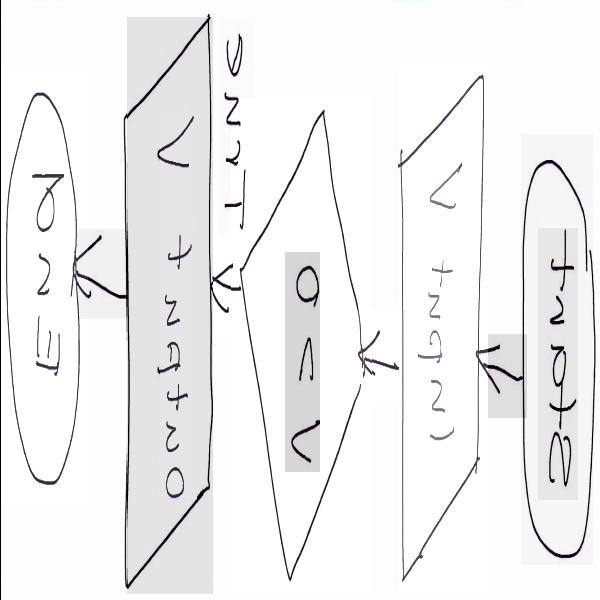 Start
input V
V = 0
True
output V
End